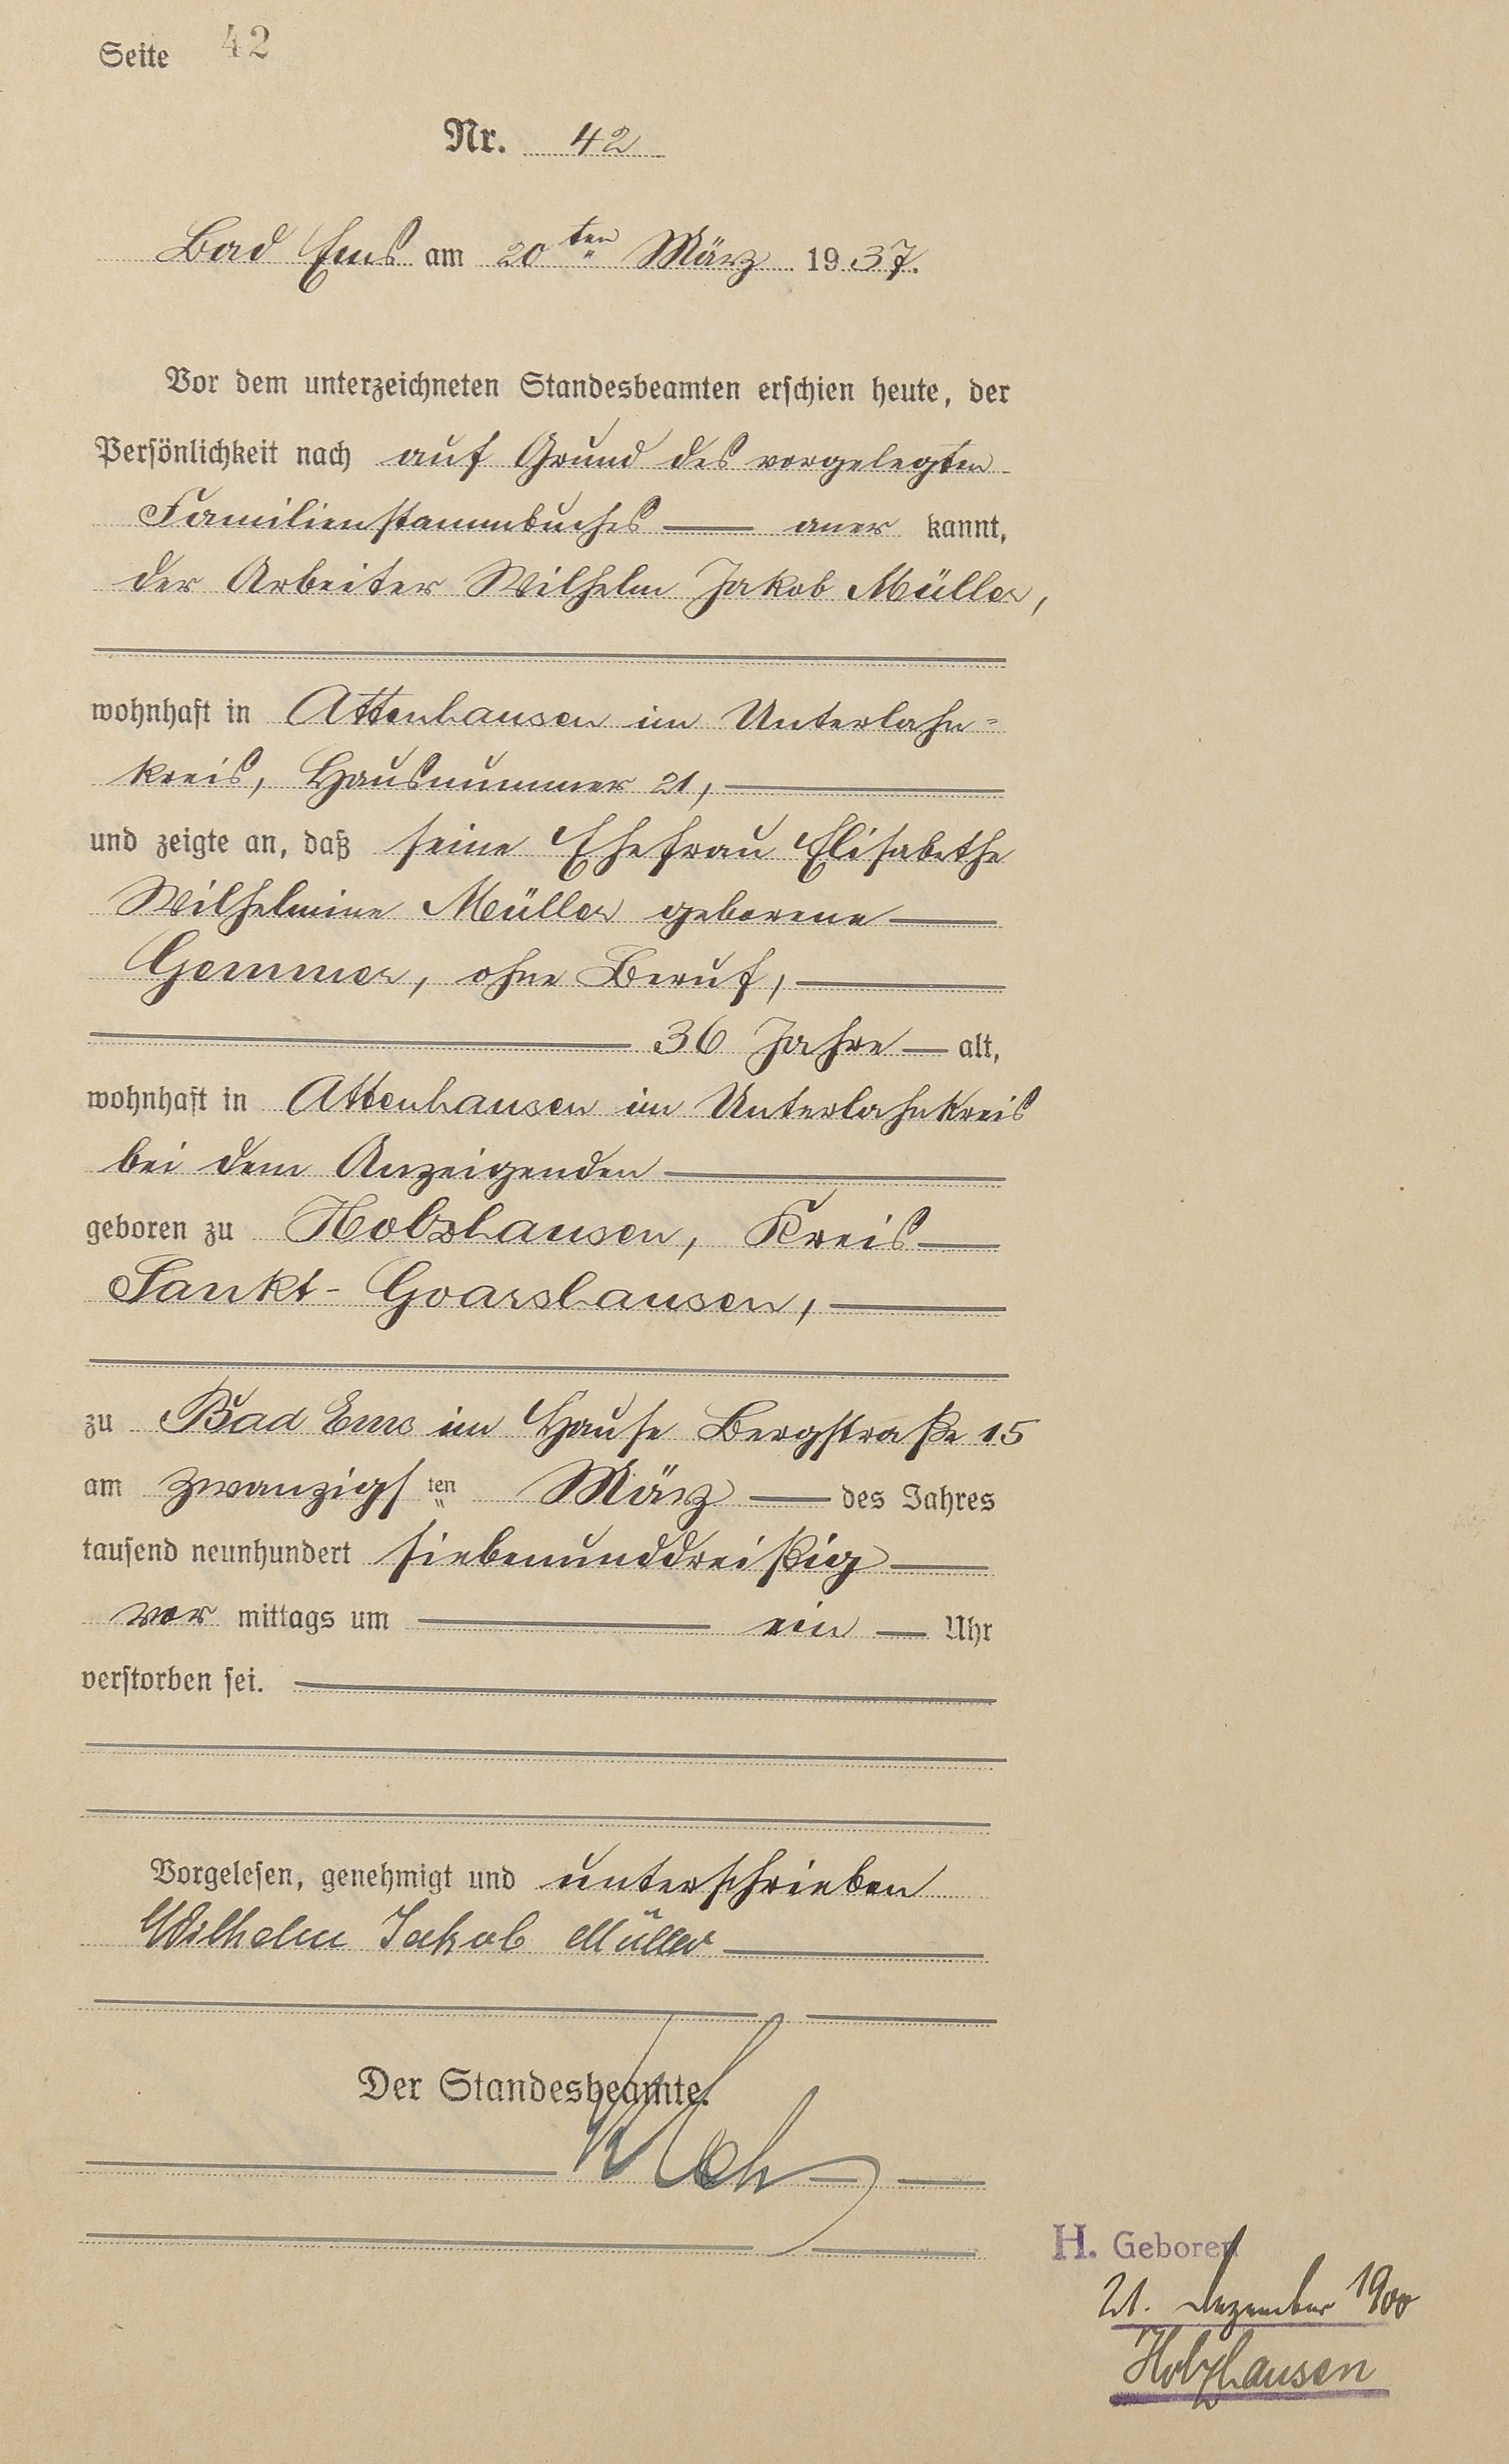 Seite 42
Nr. 42
Bad Ems am 20ten März 1937.
Vor dem unterzeichneten Standesbeamten erschien heute, der
Persönlichkeit nach auf Grund des vorgelegten
Familienstammbuches — aner kannt,
der Arbeiter Wilhelm Jakob Müller,
wohnhaft in Attenhausen im Unterlahn=
kreis, Hausnummer 21,
und zeigte an, daß seine Ehefrau Elisabethe
Wilhelmine Müller geborene
Gemmer, ohne Beruf,
36 Jahre — alt,
wohnhaft in Attenhausen im Unterlahnkreis
bei dem Anzeigenden
geboren zu Holzhausen, Kreis
Sankt-Goarshausen,
zu Bad Ems im Hause Bergstraße 15
am zwanzigsten März — des Jahres
tausend neunhundert siebenunddreißig
vor mittags um — ein — Uhr
verstorben sei.
Vorgelesen, genehmigt und unterschrieben
Wilhelm Jakob Müller
Der Standesbeamte.
H. Geboren
21. Dezember 1900
Holzhausen